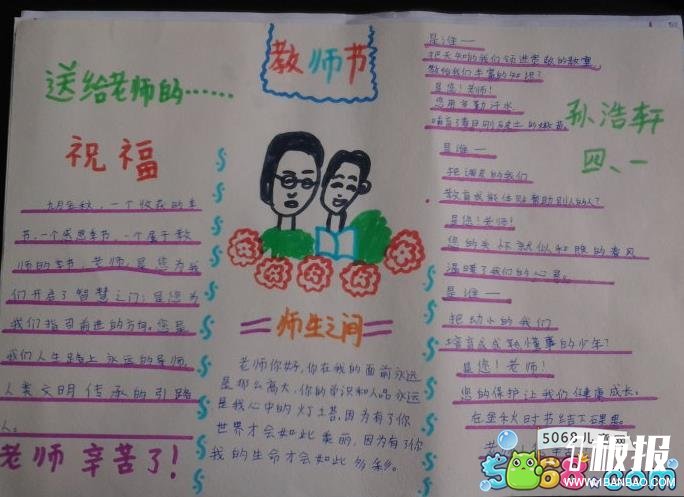 教师节
送给老师的……
祝福
九月金秋，一个收获的季
节，一个感恩季节，一个属于教
师的季节，老师，是您为我
们开启了智慧之门；是您为
我们指引前进的方向。您是
我们人生路上永远的导师，
人类文明传承的引路
人。
老师辛苦了！
师生之间
老师你好，你在我的面前永远
是那么高大，你的学识和人品永远
是我心中的灯塔，因为有了你
世界才会如此美丽，因为有了你
我的生命才会如此多彩。
孙浩轩
四、一
是谁——
把无知的我们领进宽敞的教室，
教给我们丰富的知识？
是您！老师！
您用辛勤汗水
哺育了春日刚破土的嫩苗。
是谁——
把调皮的我们
教育成能体贴帮助别人的人？
是您！老师！
您的关怀就似和暖的春风
温暖了我们的心灵。
是谁——
把幼小的我们
培育成成熟懂事的少年？
是您！老师！
您的保护让我们健康成长。
在金秋时节结下硕果。
5068儿童网
5068.com
板报
WWW.1BANBAO.COM